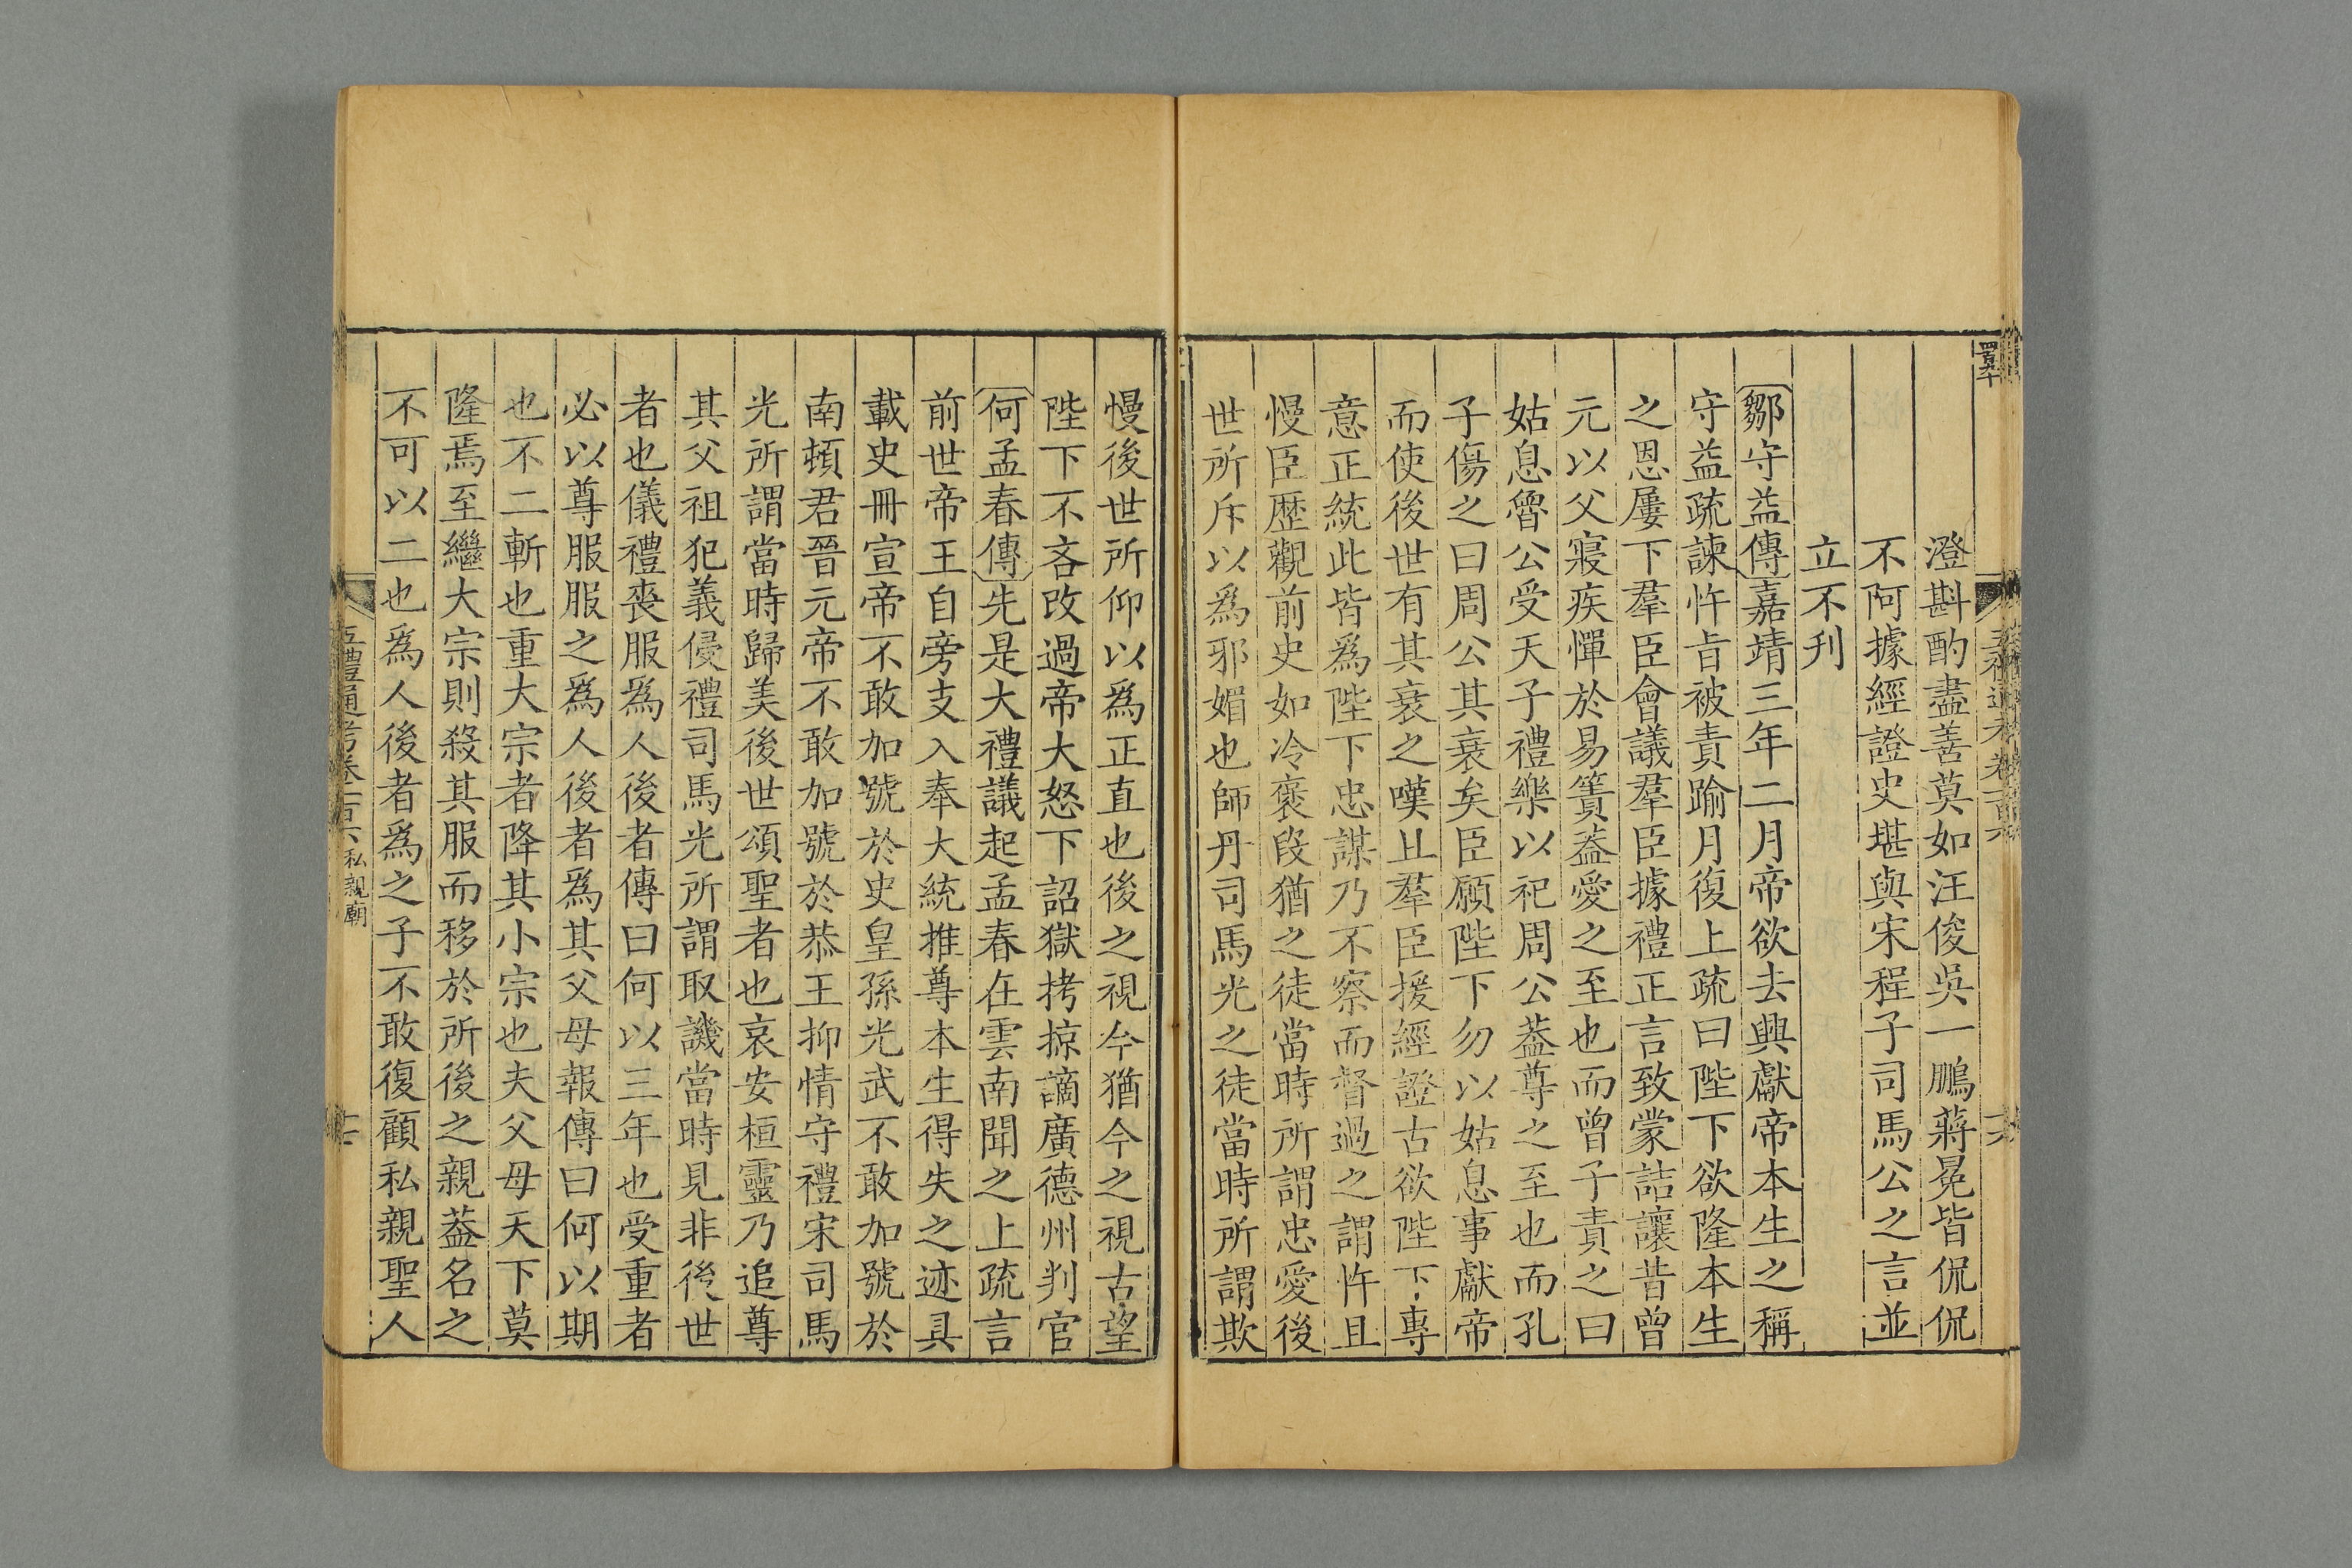 澄斟酌盡善莫如汪俊吳一鵬蔣冕皆侃侃
不阿據經證史堪與宋程子司馬公之言並
立不刋
鄒守益傳嘉靖三年二月帝欲去興獻帝本生之稱
守益疏諫忤旨被責踰月復上疏曰陛下欲隆本生
之恩屢下羣臣會議羣臣據禮正言致蒙詰讓昔曾
元以父寢疾憚於易簀葢愛之至也而曾子責之曰
姑息魯公受天子禮樂以祀周公葢尊之至也而孔
子傷之曰周公其衰矣臣願陛下勿以姑息事獻帝
而使後世有其衰之嘆且羣臣援經證古欲陛下專
意正統此皆爲陛下忠謀乃不察而督過之謂忤且
慢臣歷觀前史如冷褒段猶之徒當時所謂忠愛後
世所斥以爲邪媚也師丹司馬光之徒當時所謂欺
慢後世所仰以爲正直也後之視今猶今之視古望
陛下不吝改過帝大怒下詔獄拷掠謫廣德州判官
何孟春傳先是大禮議起孟春在雲南聞之上疏言
前世帝王自旁支入奉大統推尊本生得失之迹具
載史冊宣帝不敢加號於史皇孫光武不敢加號於
南頓君晉元帝不敢加號於恭王抑情守禮宋司馬
光所謂當時歸美後世頌聖者也哀安桓靈乃追尊
其父祖犯義侵禮司馬光所謂取譏當時見非後世
者也儀禮喪服爲人後者傳曰何以三年也受重者
必以尊服服之爲人後者爲其父母報傳曰何以期
也不二斬也重大宗者降其小宗也夫父母天下莫
隆焉至繼大宗則殺其服而移於所後之親葢名之
不可以二也爲人後者爲之子不敢復顧私親聖人
五禮通考卷一百六 私親廟